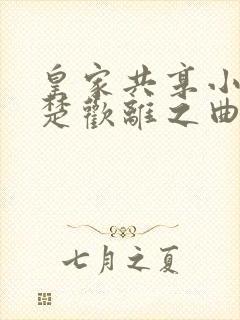 皇家共享小
楚歡離之曲
七月之夏